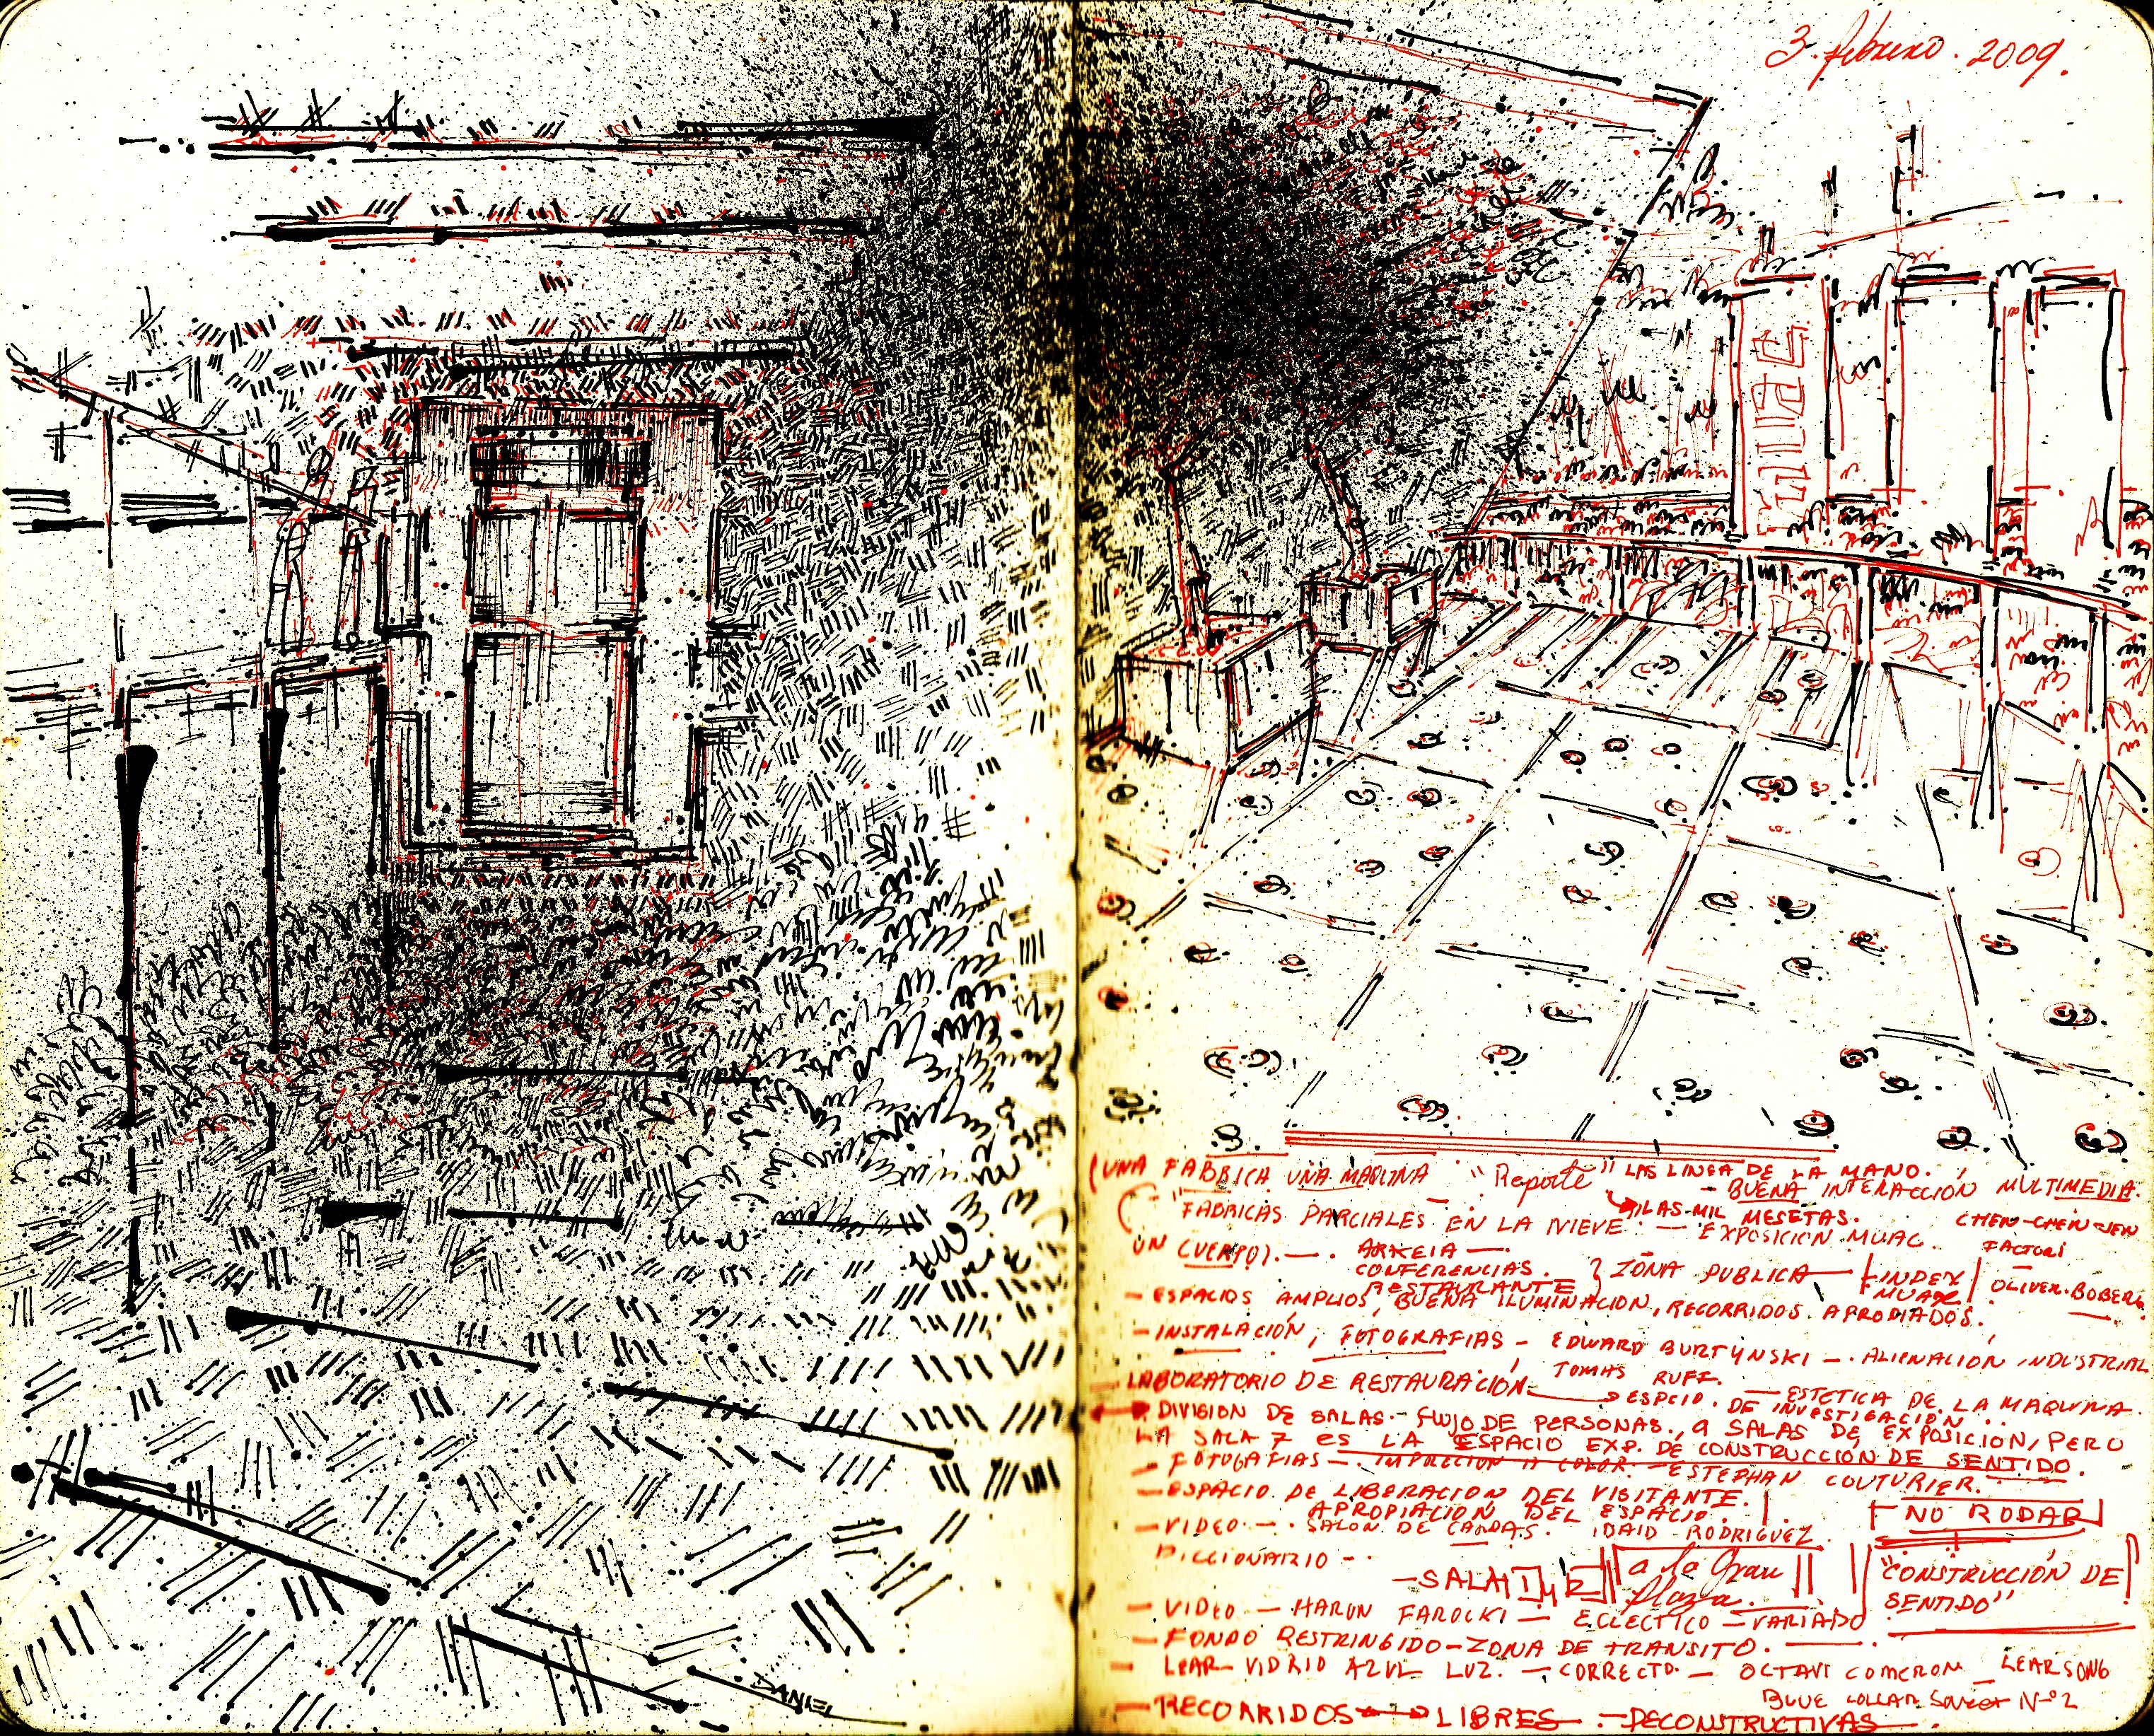 3 febrero. 2009.
muac
(UNA FABRICA UNA MAQUINA "Reporte" LAS LINEA DE LA MANO.
- BUENA INTERACCIÓN MULTIMEDIA.
LAS MIL MESETAS.
"FABRICAS PARCIALES EN LA NIEVE - EXPOSICIÓN MUAC. CHEN-CHEN
UN CUERPO). - ARKEIA -
CONFERENCIAS.
RESTAURANTE } ZONA PUBLICA - INDEX MUAC OLIVER. BOBERG
- ESPACIOS AMPLIOS, BUENA ILUMINACIÓN, RECORRIDOS APROPIADOS.
- INSTALACIÓN, FOTOGRAFIAS - EDWARD BURTYNSKI - ALIENACIÓN INDUSTRIAL
TOMAS RUFF.
- LABORATORIO DE RESTAURACIÓN → ESPCIO. DE INVESTIGACIÓN - ESTETICA DE LA MAQUINA.
DIVISION DE SALAS - FLUJO DE PERSONAS, a SALAS DE EXPOSICIÓN, PERO
LA SALA 7 es LA ESPACIO EXP. DE CONSTRUCCIÓN DE SENTIDO.
- FOTOGAFIAS - IMPRECION A COLOR - ESTEPHAN COUTURIER.
- ESPACIO DE LIBERACION DEL VISITANTE.
APROPIACIÓN DEL ESPACIO.
NO RODAR
- VIDEO - SALON DE IDAID RODRIGUEZ
DICCIONARIO -
- SALA 1 y 2 a la Gran Plaza.
"CONSTRUCCIÓN DE SENTIDO"
- VIDEO - HARUN FAROCKI - ECLECTICO - VARIADO
- FONDO RESTRINGIDO - ZONA DE TRANSITO.
- LEAR VIDRIO AZUL LUZ. - CORRECTO - OCTAVI COMERON LEARSONG
BLUE COLLAR Nº2
- RECORRIDOS → LIBRES - DECONSTRUCTIVAS
DANIEL